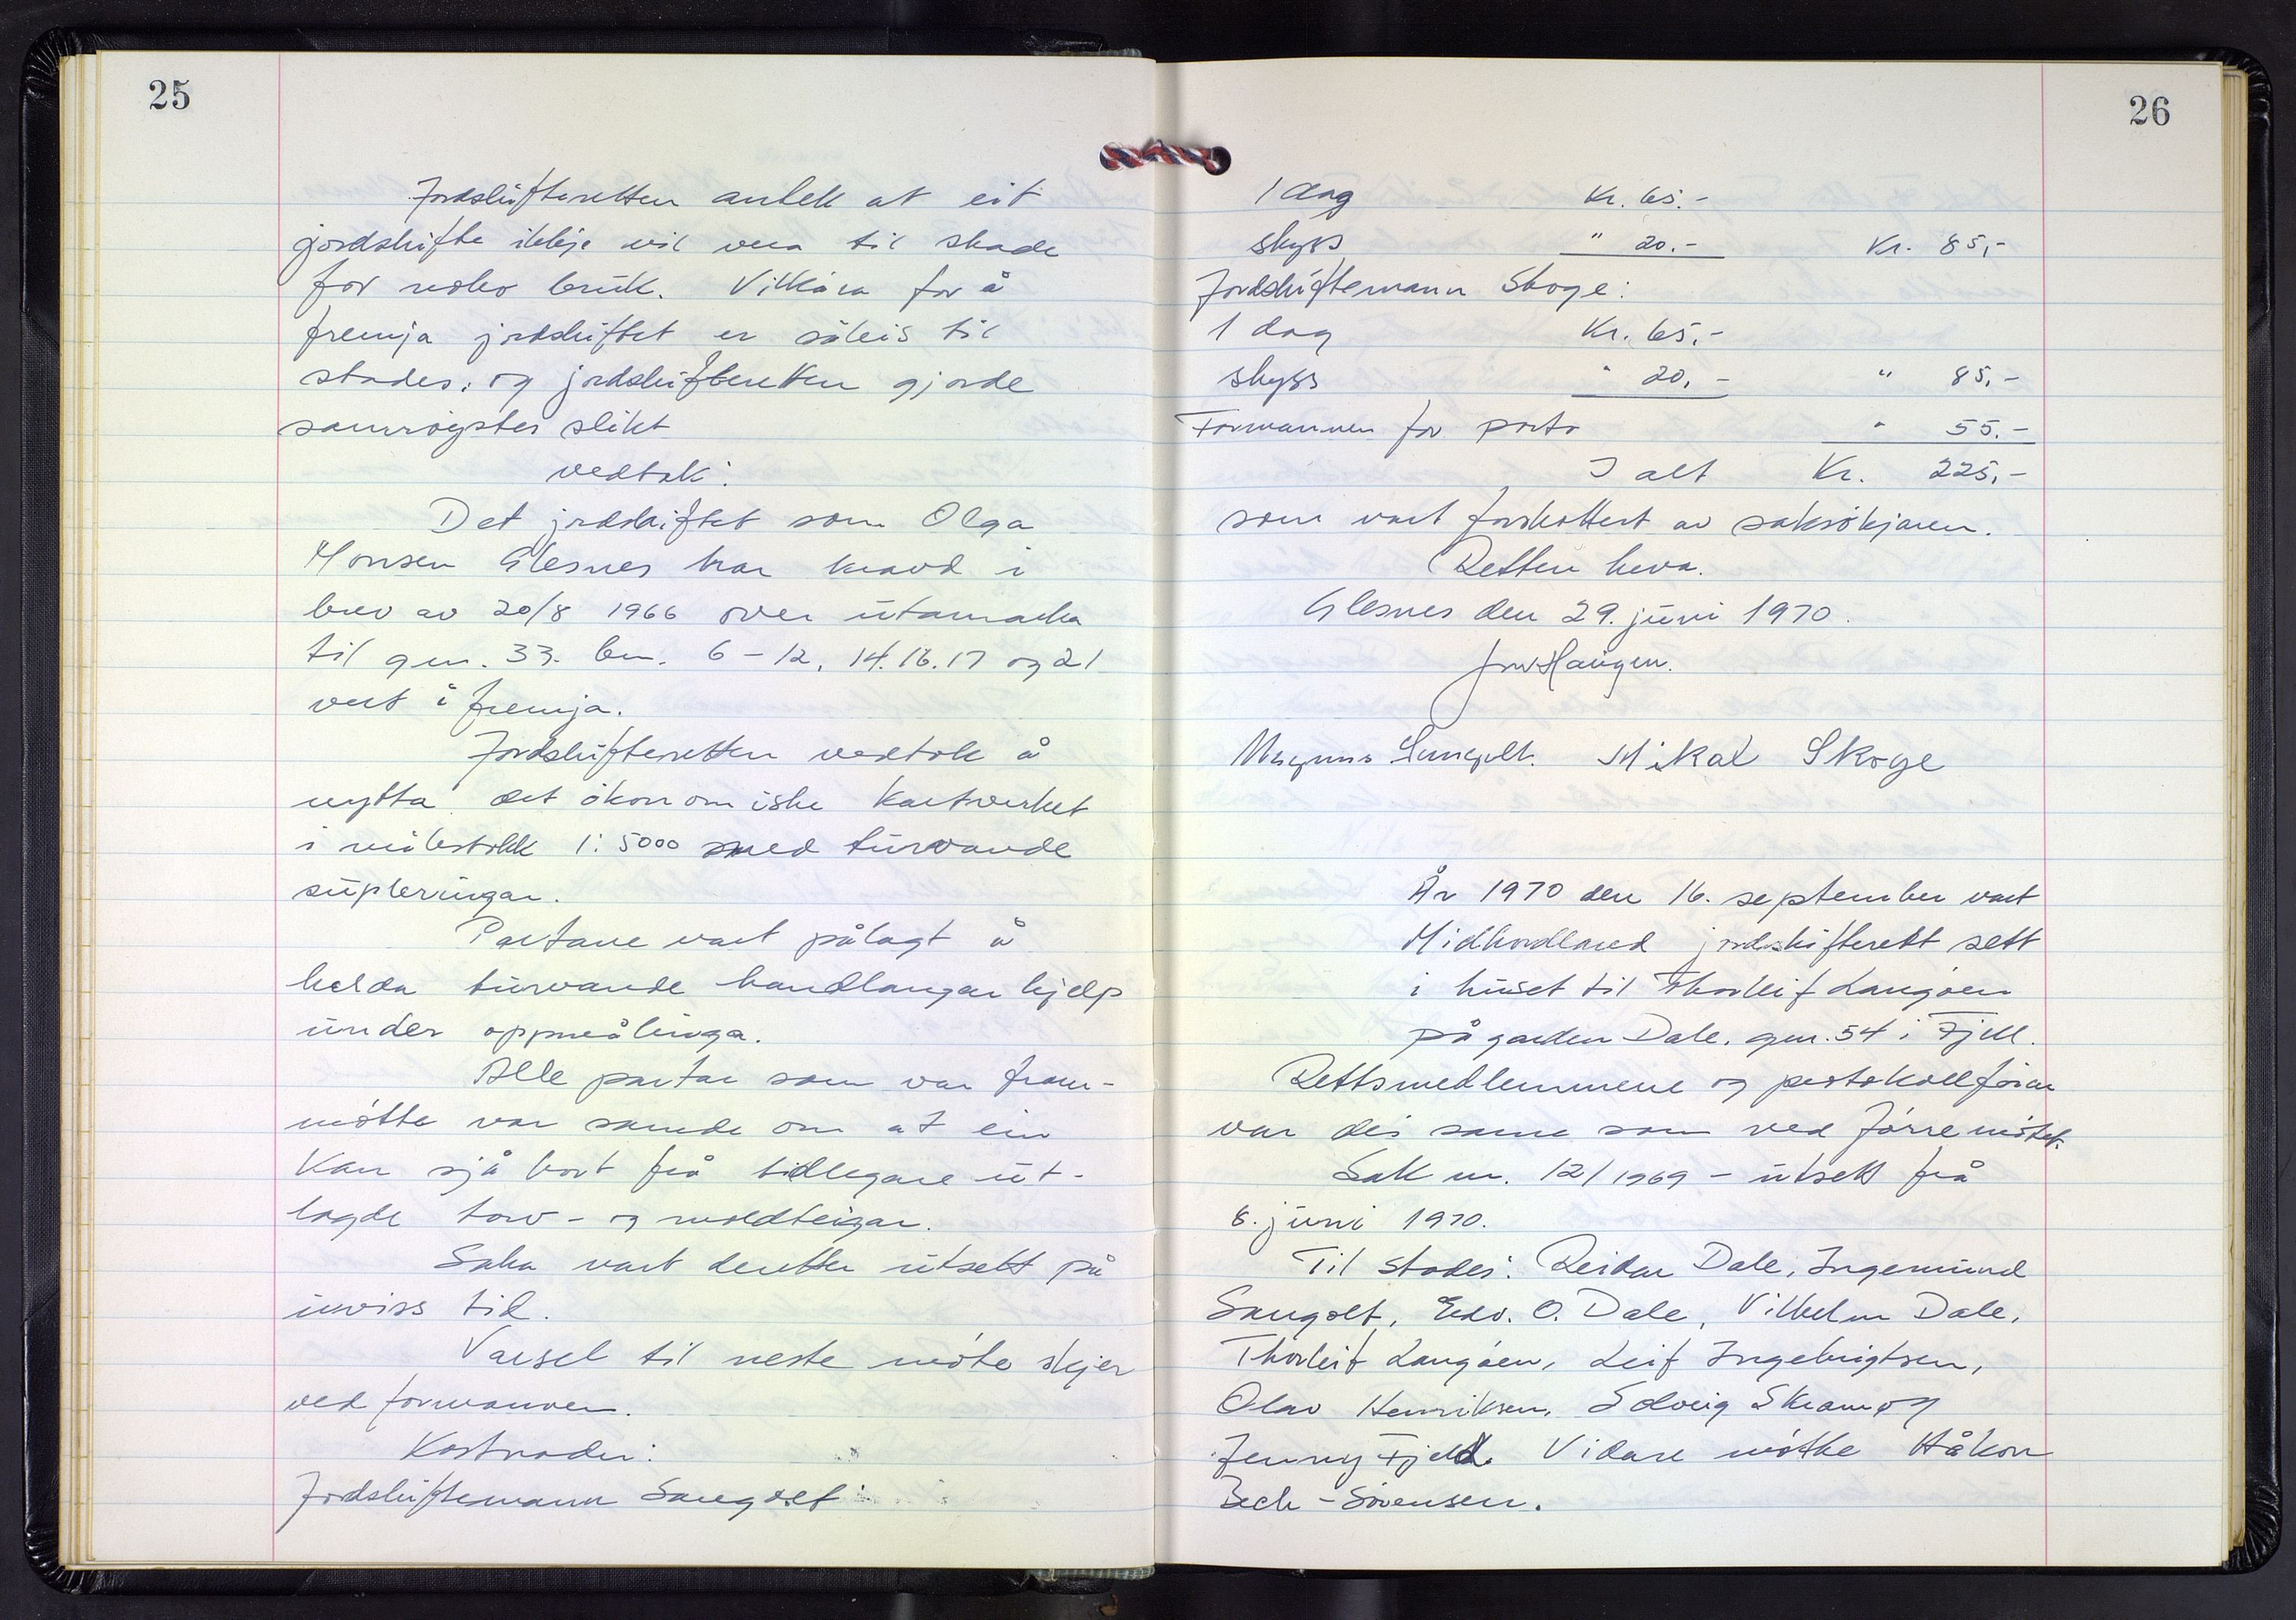 25
Jordskifteretten antek at eit
jordskifte ikkje vil vera til skade
for noko bruk. Vilkåra for å
fremja jordskiftet er såleis til
stades, og jordskifteretten gjorde
samrøystes slikt
vedtak:
Det jordskiftet som Olga
Monsen Glesnes har kravd i
brev av 20/8 1966 over utamarka
til gnr. 33. bnr. 6-12, 14. 16. 17 og 21
vert å fremja.
Jordskifteretten vedtok å
nytta det økonomiske kartverket
i målestokk 1:5000 med turvande
supleringar.
Partane vart pålagt å
halda turvande handlangar hjelp
under oppmålinga.
Alle partar som var fram-
møtte var samde om at ein
kan sjå bort frå tidlegare ut-
lagde torv- og moldteigar.
Saka vart deretter utsett på
uviss tid.
Varsel til neste møte skjer
ved formannen.
Kostnader:
Jordskiftemann Sangolt:
26
1 dag Kr. 65.-
skyss " 20.- Kr. 85,-
Jordskiftemann Skoge:
1 dag Kr. 65,-
skyss " 20,- " 85,-
Formannen for porto " 55.-
I alt Kr. 225,-
som vart forskottert av saksøkjaren.
Retten heva.
Glesnes den 29. juni 1970.
Haugen.
Magnus Sangolt. Mikal Skoge
År 1970 den 16. september vart
Midhordland jordskifterett sett
i huset til Thorleif Langøen
på garden Dale, gnr. 54 i Fjell.
Rettsmedlemmene og protokollførar
var dei same som ved førre møtet.
Sak nr. 12/1969 - utsett frå
8. juni 1970.
Til stades: Reidar Dale, Ingemund
Sangolt, Edv. O. Dale, Vilhelm Dale,
Thorleif Langøen, Leif Ingebrigtsen,
Olav Henriksen, Solveig Skram og
Jenny Fjeld. Vidare møtte Håkon
Zech-Sørensen.